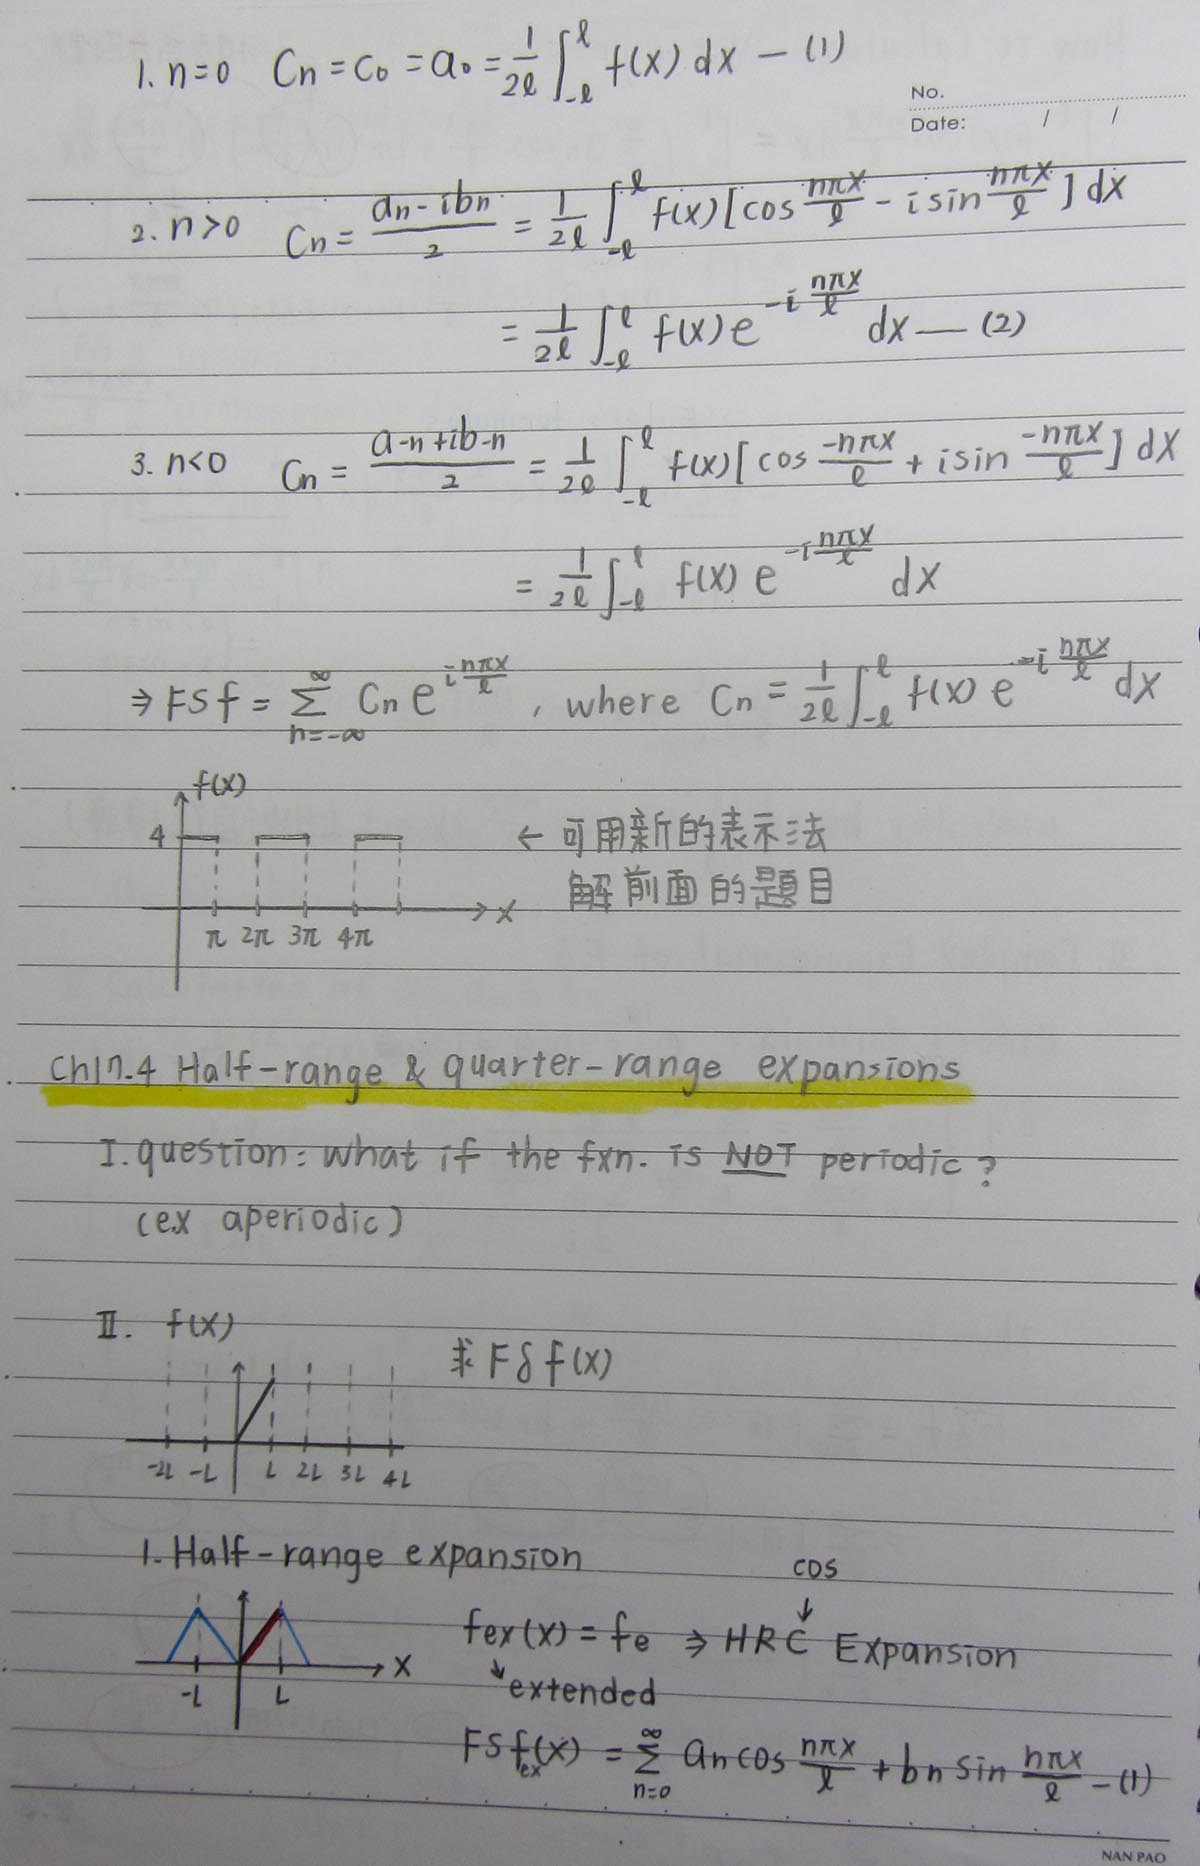 1. n=0 Cn = C0 = a0 = 1/2ℓ ∫_-ℓ^ℓ f(x) dx — (1)
No.
Date: / /
2. n>0 Cn = (an - ibn)/2 = 1/2ℓ ∫_-ℓ^ℓ f(x) [cos nπx/ℓ - i sin nπx/ℓ] dx
= 1/2ℓ ∫_-ℓ^ℓ f(x) e^(-i nπx/ℓ) dx — (2)
3. n<0 Cn = (a-n + ib-n)/2 = 1/2ℓ ∫_-ℓ^ℓ f(x) [cos -nπx/ℓ + i sin -nπx/ℓ] dx
= 1/2ℓ ∫_-ℓ^ℓ f(x) e^(-i nπx/ℓ) dx
⇒ FS f = Σ_(n=-∞)^∞ Cn e^(i nπx/ℓ) , where Cn = 1/2ℓ ∫_-ℓ^ℓ f(x) e^(-i nπx/ℓ) dx
f(x)
4
← 可用新的表示法
解前面的題目
x
π 2π 3π 4π
Ch17.4 Half-range & quarter-range expansions
I. question: what if the fxn. is NOT periodic?
(ex aperiodic)
II. f(x)
求 FS f(x)
-2L -L L 2L 3L 4L
1. Half-range expansion
cos
↓
fex(x) = fe ⇒ HRC Expansion
x
↘extended
-L L
FS fex(x) = Σ_(n=0)^∞ an cos nπx/ℓ + bn sin nπx/ℓ — (1)
NAN PAO